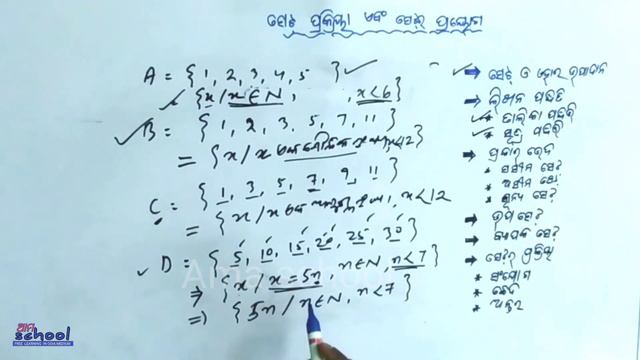 ସେଟ୍ ପ୍ରକ୍ରିୟା ଏବଂ ସେଟ୍‌ର ପ୍ରୟୋଗ
A = {1, 2, 3, 4, 5}
{x/x∈N, x<6}
B = {1, 2, 3, 5, 7, 11}
= {x/x ଏକ ମୌଳିକ
C = {1, 3, 5, 7, 9, 11}
= {x/x ଏକ x<12
D = {5, 10, 15, 20, 25, 30}
⇒ {x/x=5n, n∈N, n<7}
⇒ {5n/n∈N, n<7}
→ ସେଟ୍ ଓ ଏହାର ଉପାଦାନ
→ ଲିଖନ ପଦ୍ଧତି
* ତାଲିକା ପଦ୍ଧତି
* ସୂତ୍ର ପଦ୍ଧତି
→ ପ୍ରକାର ଭେଦ
* ସସୀମ ସେଟ୍
* ଅସୀମ ସେଟ୍
* ଶୂନ୍ୟ ସେଟ୍
→ ଉପସେଟ୍
→ ବ୍ୟାପକ ସେଟ୍
→ ସେଟ୍ ପ୍ରକ୍ରିୟା
* ସଂଯୋଗ
* ଛେଦ
* ଅନ୍ତର
ଆମ
school
FREE LEARNING IN ODIA MEDIUM